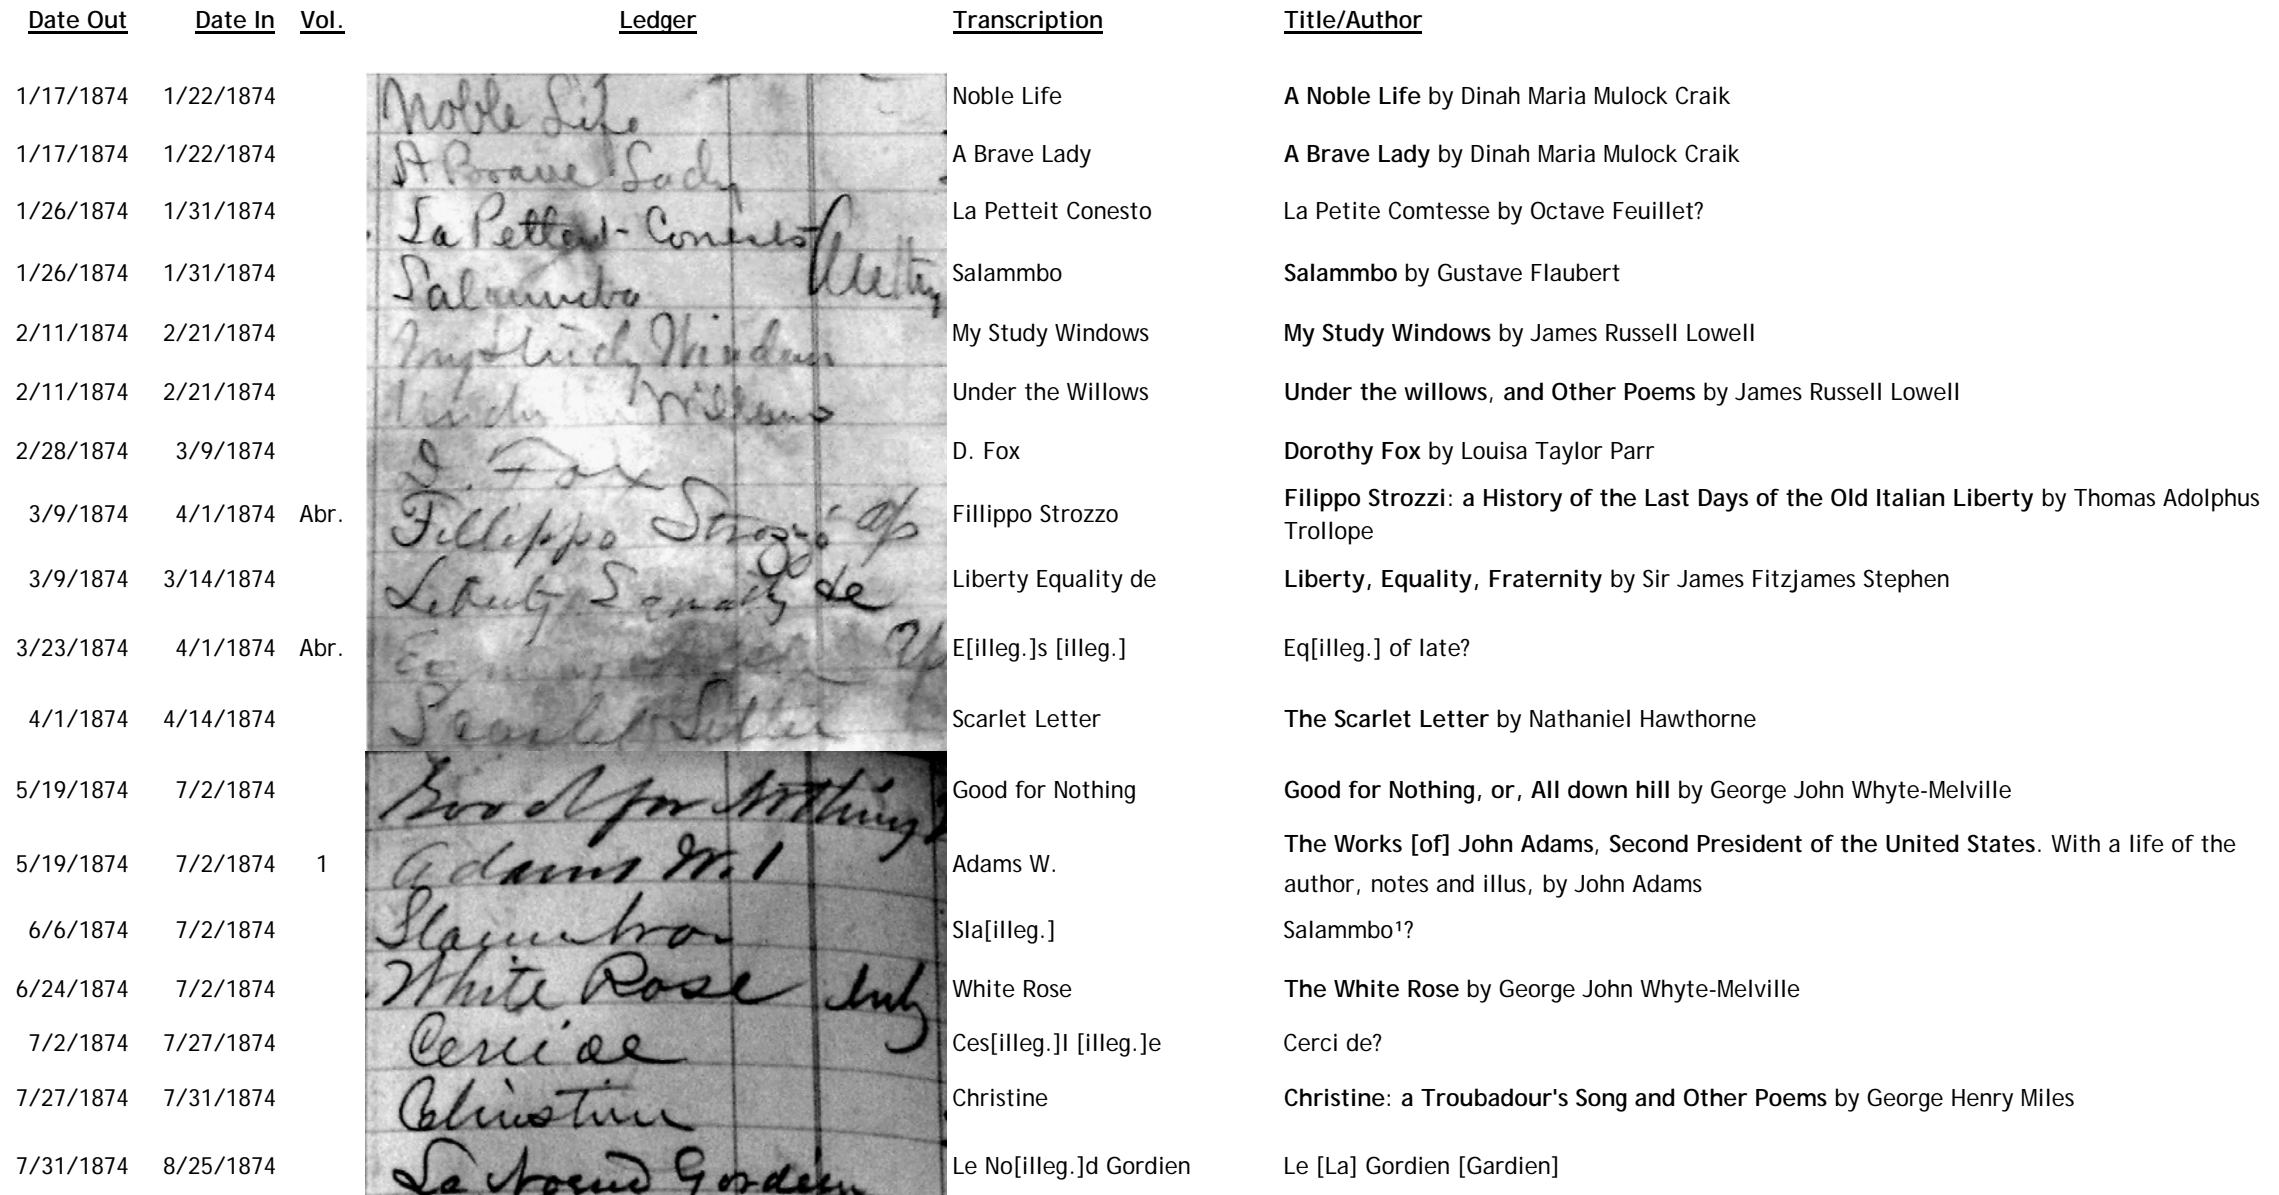 Date Out Date In Vol. Ledger Transcription Title/Author
1/17/1874 1/22/1874 Noble Life Noble Life A Noble Life by Dinah Maria Mulock Craik
1/17/1874 1/22/1874 A Brave Lady A Brave Lady A Brave Lady by Dinah Maria Mulock Craik
1/26/1874 1/31/1874 La Petteit Conesto La Petteit Conesto La Petite Comtesse by Octave Feuillet?
1/26/1874 1/31/1874 Salammbo Salammbo Salammbo by Gustave Flaubert
2/11/1874 2/21/1874 My Study Windows My Study Windows My Study Windows by James Russell Lowell
2/11/1874 2/21/1874 Under the Willows Under the Willows Under the willows, and Other Poems by James Russell Lowell
2/28/1874 3/9/1874 D. Fox D. Fox Dorothy Fox by Louisa Taylor Parr
3/9/1874 4/1/1874 Abr. Fillippo Strozzi Fillippo Strozzo Filippo Strozzi: a History of the Last Days of the Old Italian Liberty by Thomas Adolphus
Trollope
3/9/1874 3/14/1874 Liberty Equality de Liberty Equality de Liberty, Equality, Fraternity by Sir James Fitzjames Stephen
3/23/1874 4/1/1874 Abr. E[illeg.]s [illeg.] Eq[illeg.] of late?
4/1/1874 4/14/1874 Scarlet Letter Scarlet Letter The Scarlet Letter by Nathaniel Hawthorne
5/19/1874 7/2/1874 Good for Nothing Good for Nothing Good for Nothing, or, All down hill by George John Whyte-Melville
5/19/1874 7/2/1874 1 Adams W. 1 Adams W. The Works [of] John Adams, Second President of the United States. With a life of the
author, notes and illus, by John Adams
6/6/1874 7/2/1874 Sla[illeg.] Salammbo¹?
6/24/1874 7/2/1874 White Rose July White Rose The White Rose by George John Whyte-Melville
7/2/1874 7/27/1874 Ces[illeg.]l [illeg.]e Cerci de?
7/27/1874 7/31/1874 Christine Christine: a Troubadour's Song and Other Poems by George Henry Miles
7/31/1874 8/25/1874 La Noeud Gordien Le No[illeg.]d Gordien Le [La] Gordien [Gardien]